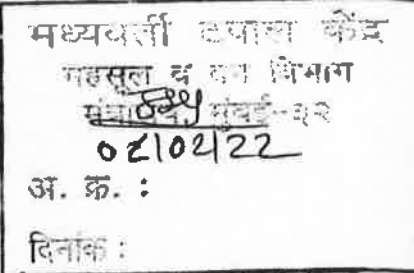 मध्यवर्ती टपाल केंद्र
महसूल व वन विभाग
मंत्रालय, मुंबई-३२
08/02/22
अ. क्र. :
दिनांक :